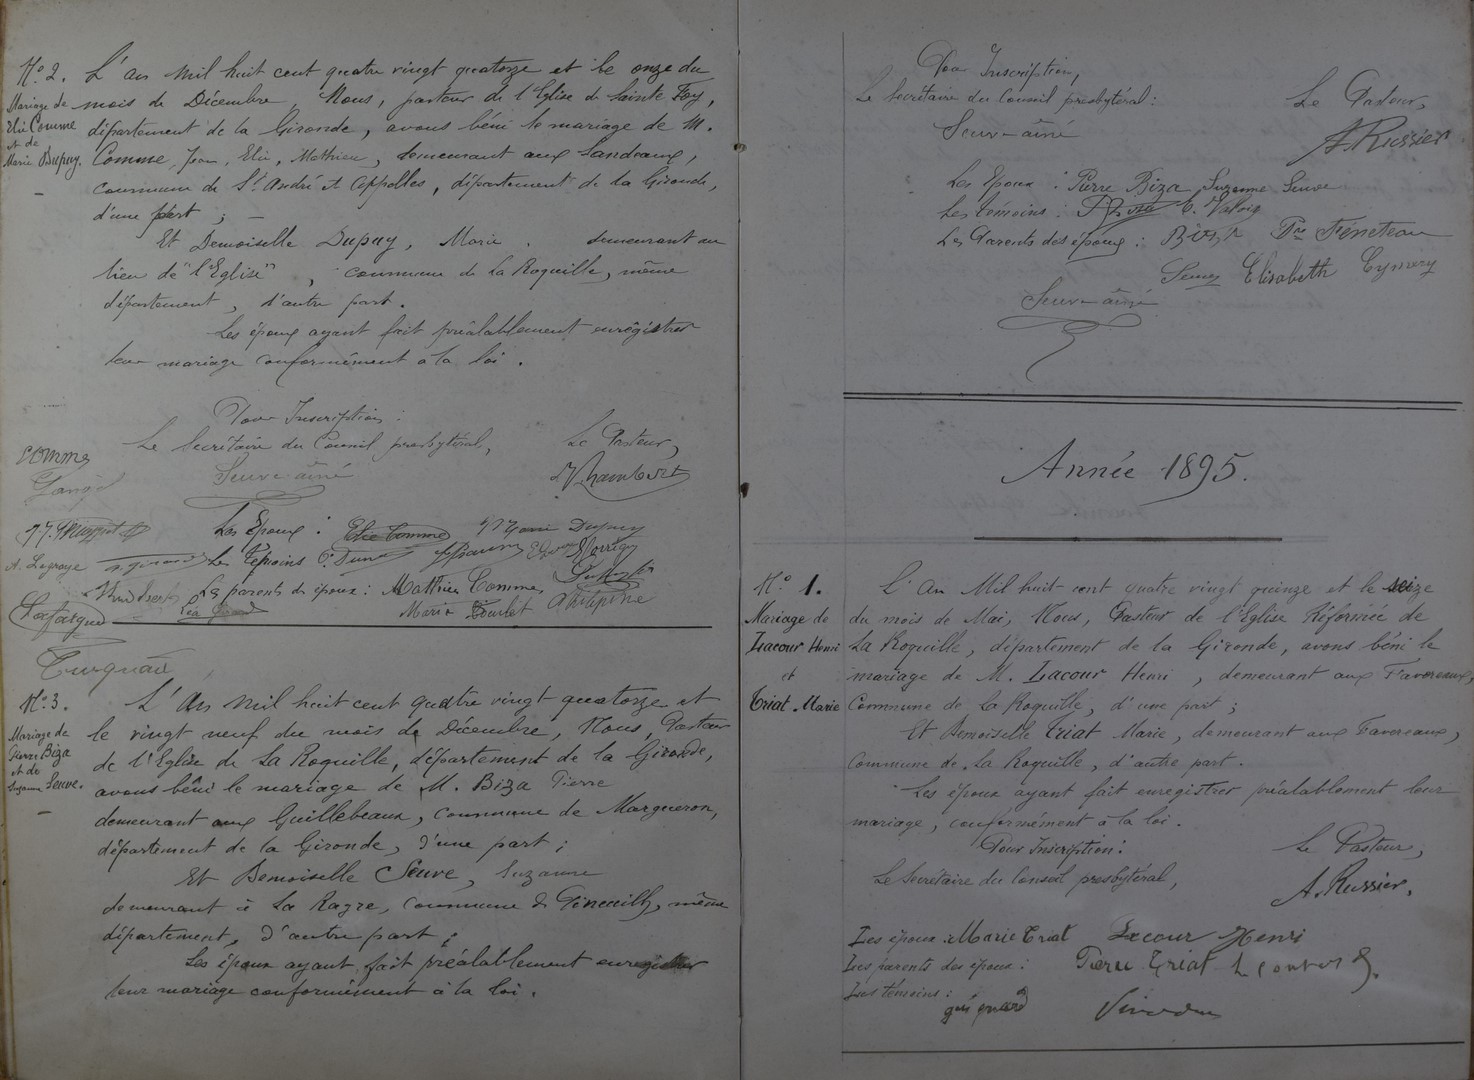 N° 2. L'an mil huit cent quatre vingt quatorze et le onze du
Mariage de
Elie Comme
et de
Marie Dupuy.
mois de Décembre, Nous, pasteur de l'Eglise de Sainte Foy,
département de la Gironde, avons béni le mariage de M.
Comme, Jean, Elie, Mathieu, demeurant aux Landeaux,
commune de St André et Appelles, département de la Gironde,
d'une part ; —
Et Demoiselle Dupuy, Marie. demeurant au
lieu de "l'Eglise", commune de La Roquille, même
département, d'autre part.
Les époux ayant fait préalablement enrégistrer
leur mariage conformément à la loi.
Pour Inscription :
Le Secrétaire du Conseil presbytéral, Le Pasteur,
Comme
Seuve-aîné
Les Epoux : Elie Comme Marie Dupuy
Les Témoins
Les parents des époux : Mathieu Comme
Léa
Maria
Lafargue
N° 3. L'An mil huit cent quatre vingt quatorze et
Mariage de
Pierre Biza
et de
Suzanne Seuve.
le vingt neuf du mois de Décembre, Nous, Pasteur
de l'Eglise de La Roquille, département de la Gironde,
avons béni le mariage de M. Biza Pierre
demeurant aux Guillebeaux, commune de Margueron,
département de la Gironde, d'une part ;
Et Demoiselle Seuve, Suzanne
demeurant à La Ragre, commune de Pineuilh, même
département, d'autre part ;
Les époux ayant fait préalablement enregistrer
leur mariage conformément à la loi.
Pour Inscription,
Le Secrétaire du Conseil presbytéral : Le Pasteur,
Seuve-aîné A. Russier
Les Epoux : Pierre Biza Suzanne Seuve
Les témoins :
Les Parents des époux : Biza Feneteau
Elisabeth Eymery
Seuve-aîné
Année 1895.
N° 1.
Mariage de
Lacour Henri
et
Triat Marie
L'An Mil huit cent quatre vingt quinze et le seize
du mois de Mai, Nous, Pasteur de l'Eglise Réformée de
La Roquille, département de la Gironde, avons béni le
mariage de M. Lacour Henri, demeurant aux Favereaux,
Commune de La Roquille, d'une part ;
Et Demoiselle Triat Marie, demeurant aux Favereaux,
Commune de La Roquille, d'autre part.
Les époux ayant fait enregistrer préalablement leur
mariage, conformément à la loi.
Pour Inscription : Le Pasteur,
Le Secrétaire du Conseil presbytéral, A. Russier.
Les époux : Marie Triat Lacour Henri
Les parents des époux : Pierre Triat
Les témoins :
guignard